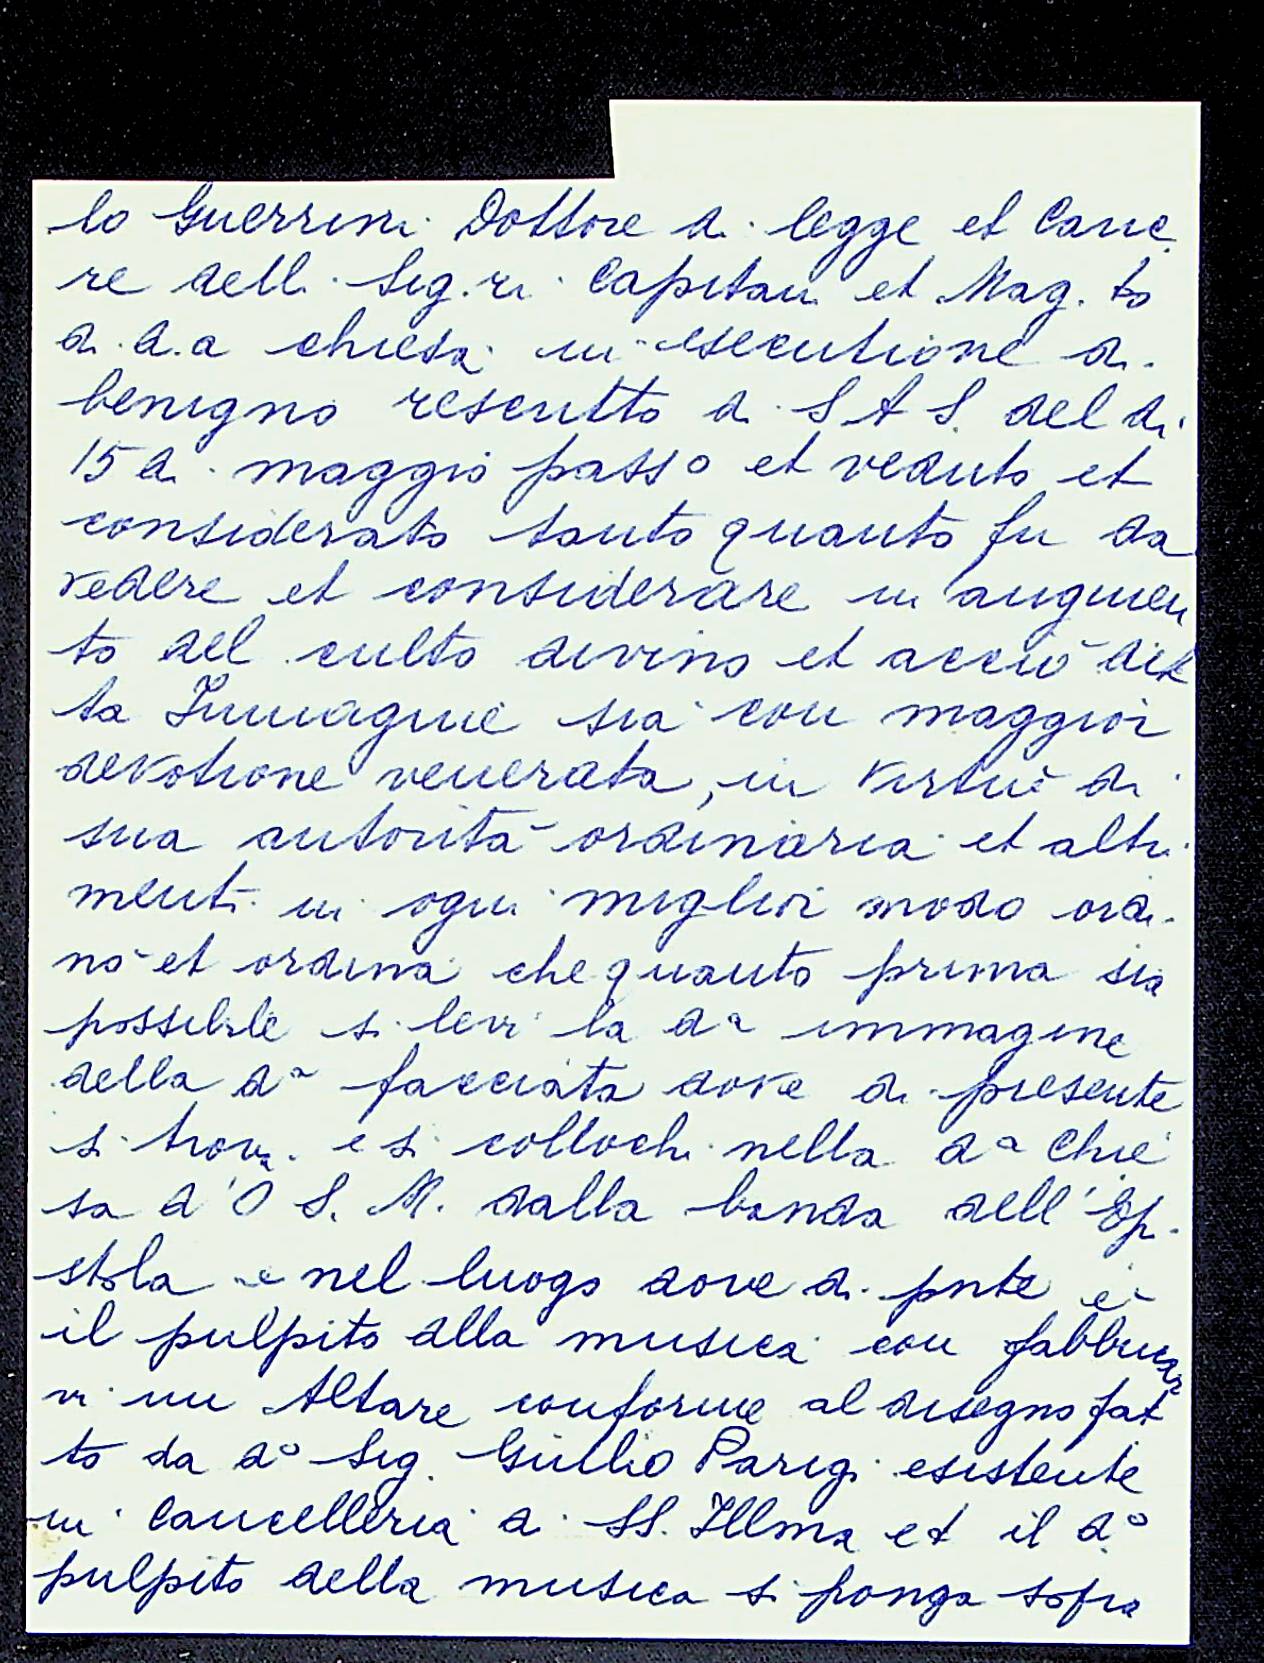 lo Guerrini Dottore di legge et Canc
re delli Sig.ri Capitani et Mag.to
di d.a chiesa in esecutione di
benigno rescritto di S A S. del di
15 di maggio passo et veduto et
considerato tanto quanto fu da
vedere et considerare in augumen
to del culto divino et acciò dit
ta Immagine sia con maggior
devotione venerata, in virtù di
sua autorità ordinaria et altri
menti in ogni miglior modo ordi
nò et ordina che quanto prima sia
possibile si levi la da immagine
della da facciata dove di presente
si trova e si collochi nella da Chie
sa d'O S. M. dalla banda dell'Epi
stola e nel luogo dove di pnte è
il pulpito alla musica con fabbricar
vi un Altare conforme al disegno fat
to da do Sig. Giulio Parigi esistente
in Cancelleria di SS. Illma et il do
pulpito della musica si ponga sopra